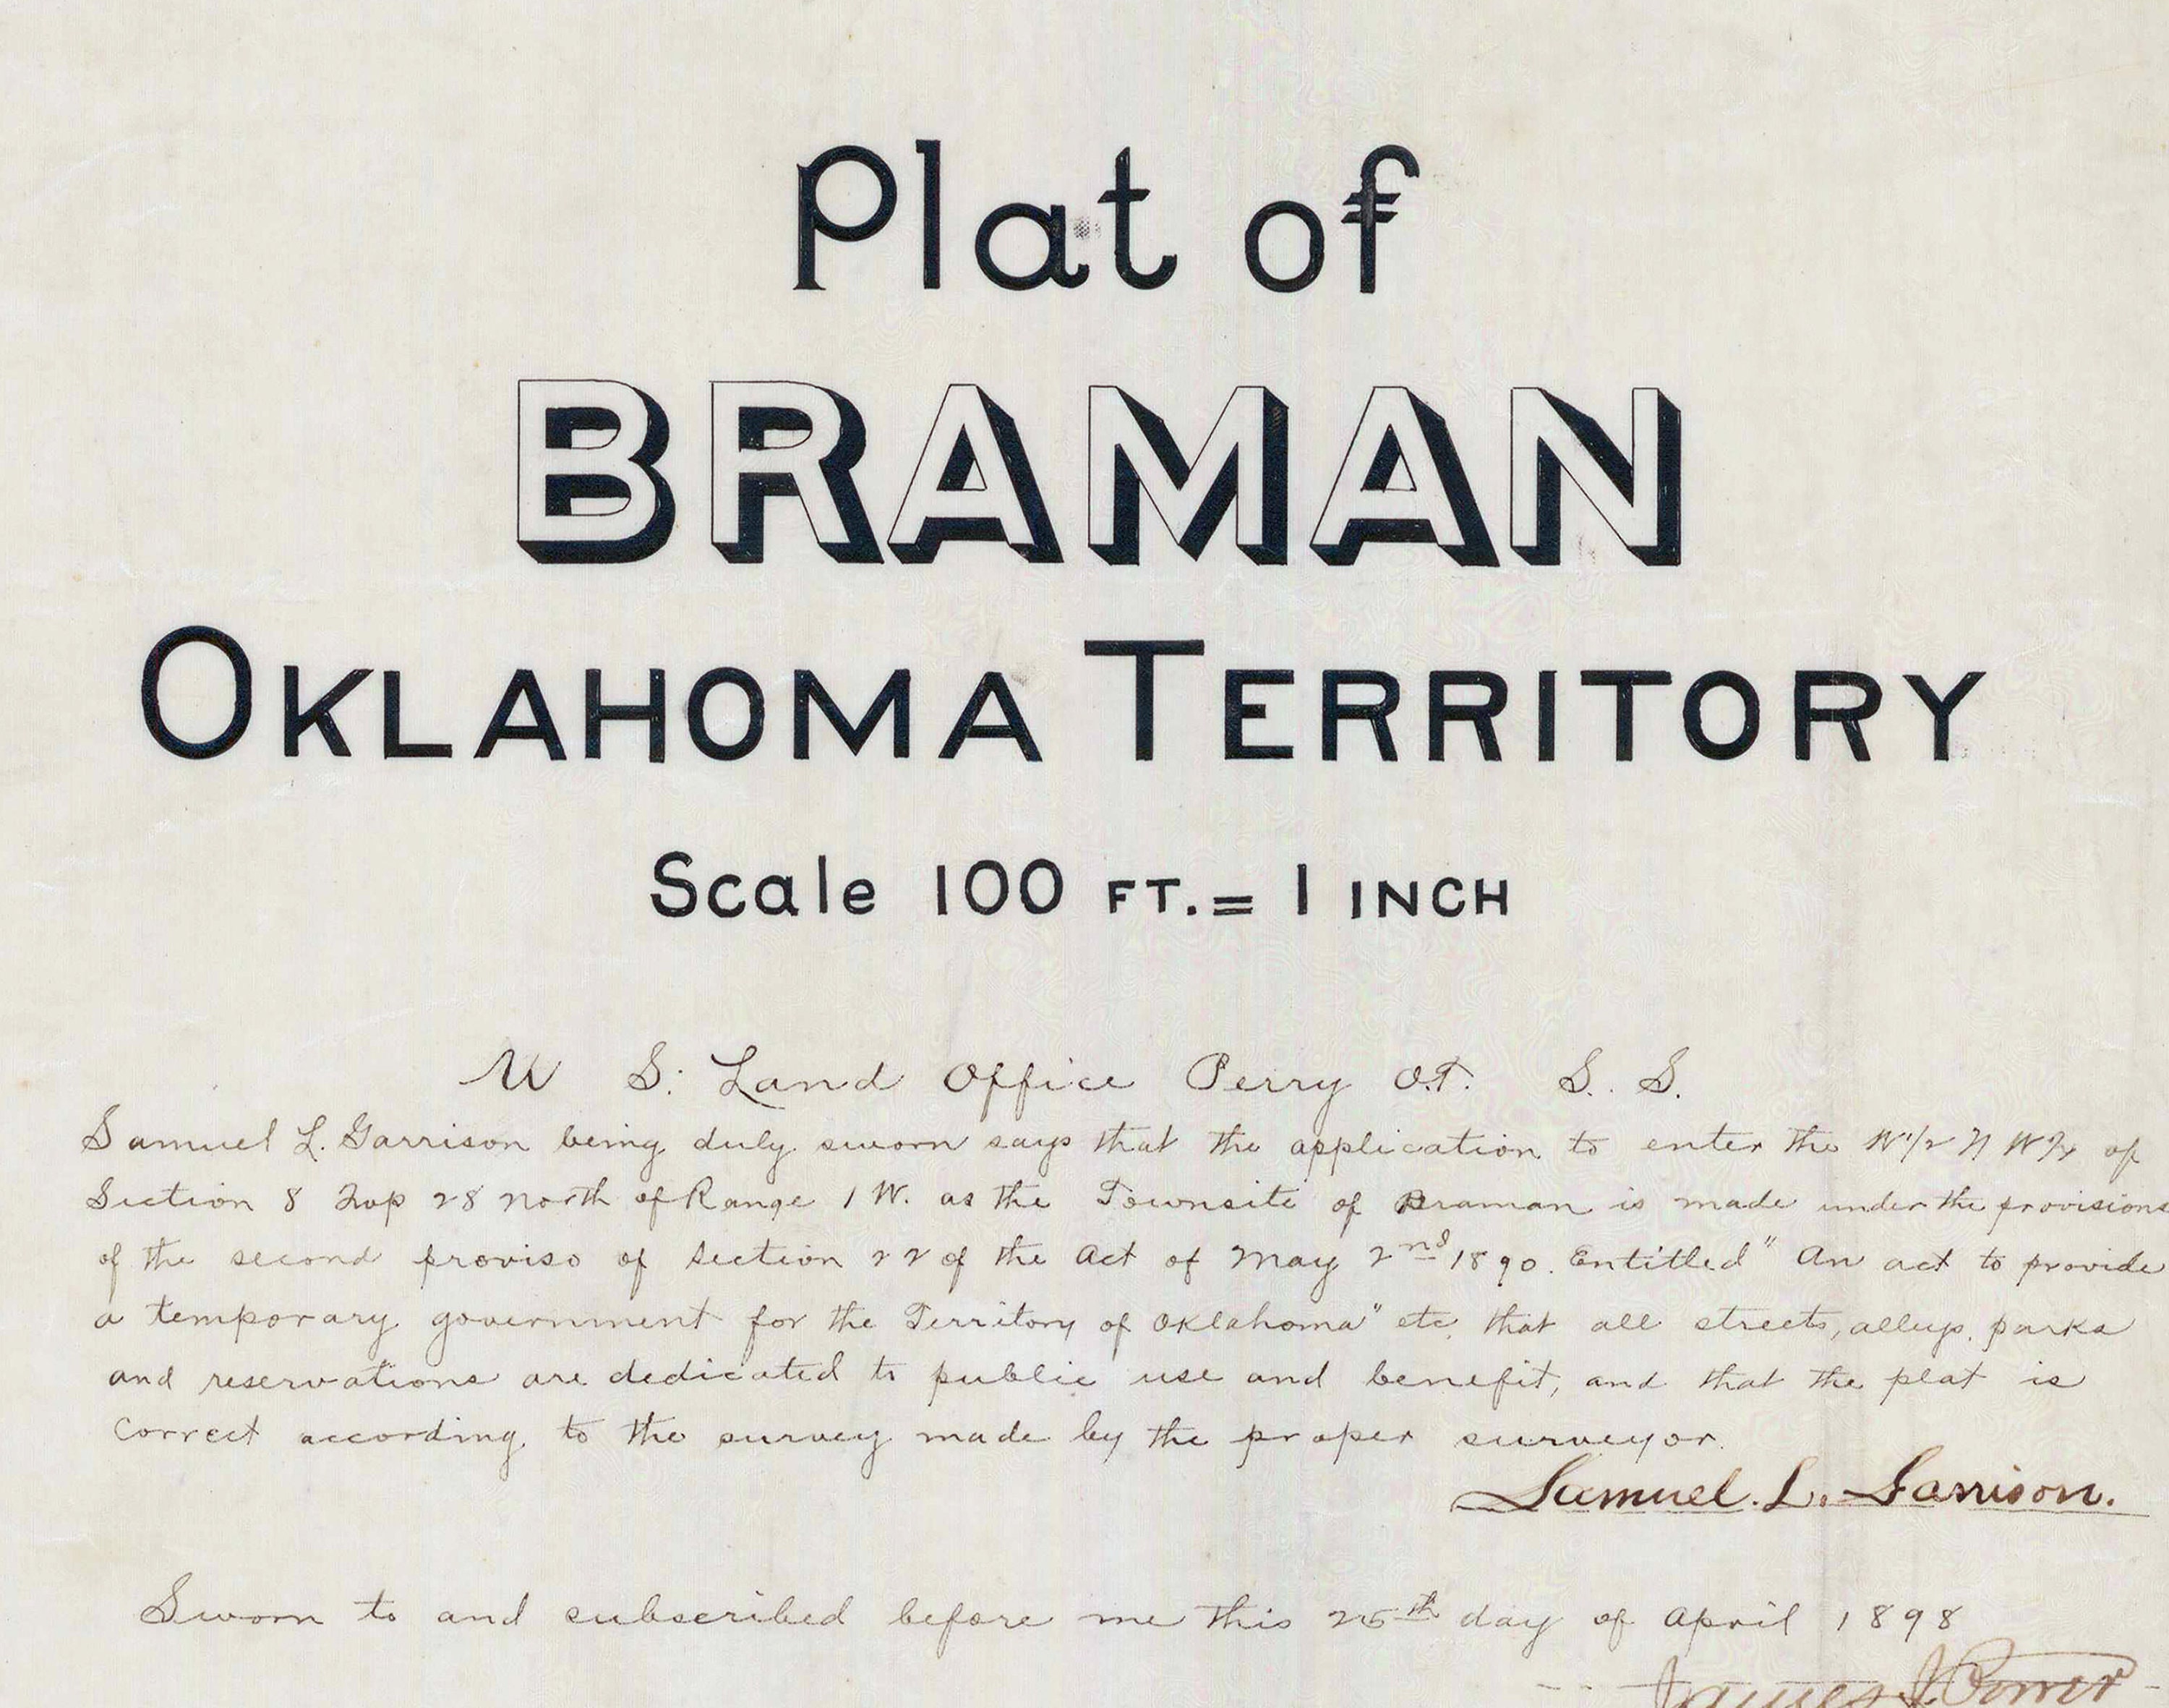 Plat of
BRAMAN
OKLAHOMA TERRITORY
Scale 100 FT. = 1 INCH
U S. Land Office Perry O.T. S. S.
Samuel L. Garrison being duly sworn says that the application to enter the W 1/2 N W 1/4 of
Section 8 Twp 28 North of Range 1 W. as the Townsite of Braman is made under the provisions
of the second proviso of Section 22 of the Act of May 2nd 1890. Entitled "An act to provide
a temporary government for the Territory of Oklahoma" etc. that all streets, alleys, parks
and reservations are dedicated to public use and benefit, and that the plat is
correct according to the survey made by the proper surveyor.
Samuel. L. Garrison.
Sworn to and subscribed before me this 25th day of April 1898
James J